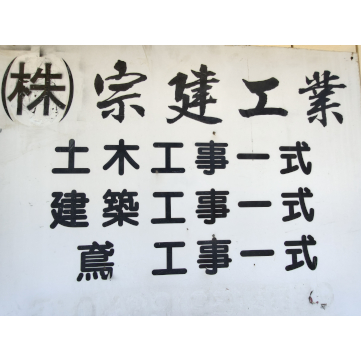 ㈱宗建工業
土木工事一式
建築工事一式
鳶 工事一式